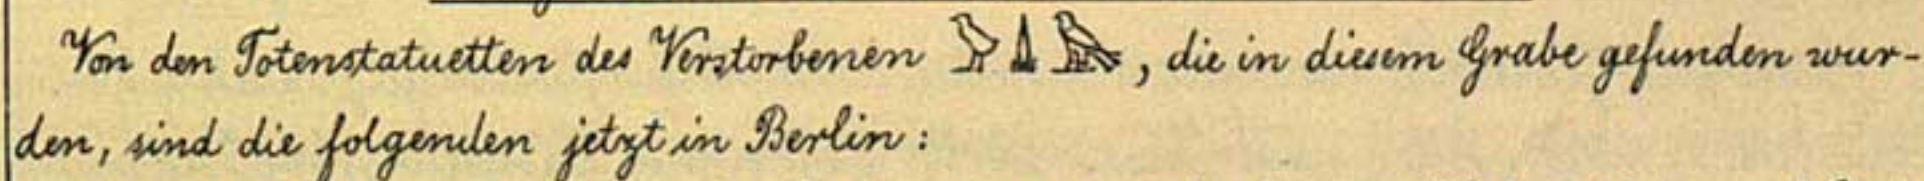 Von den Totenstatuetten des Verstorbenen 𓅱𓇮𓅪, die in diesem Grabe gefunden wur-
den, sind die folgenden jetzt in Berlin: